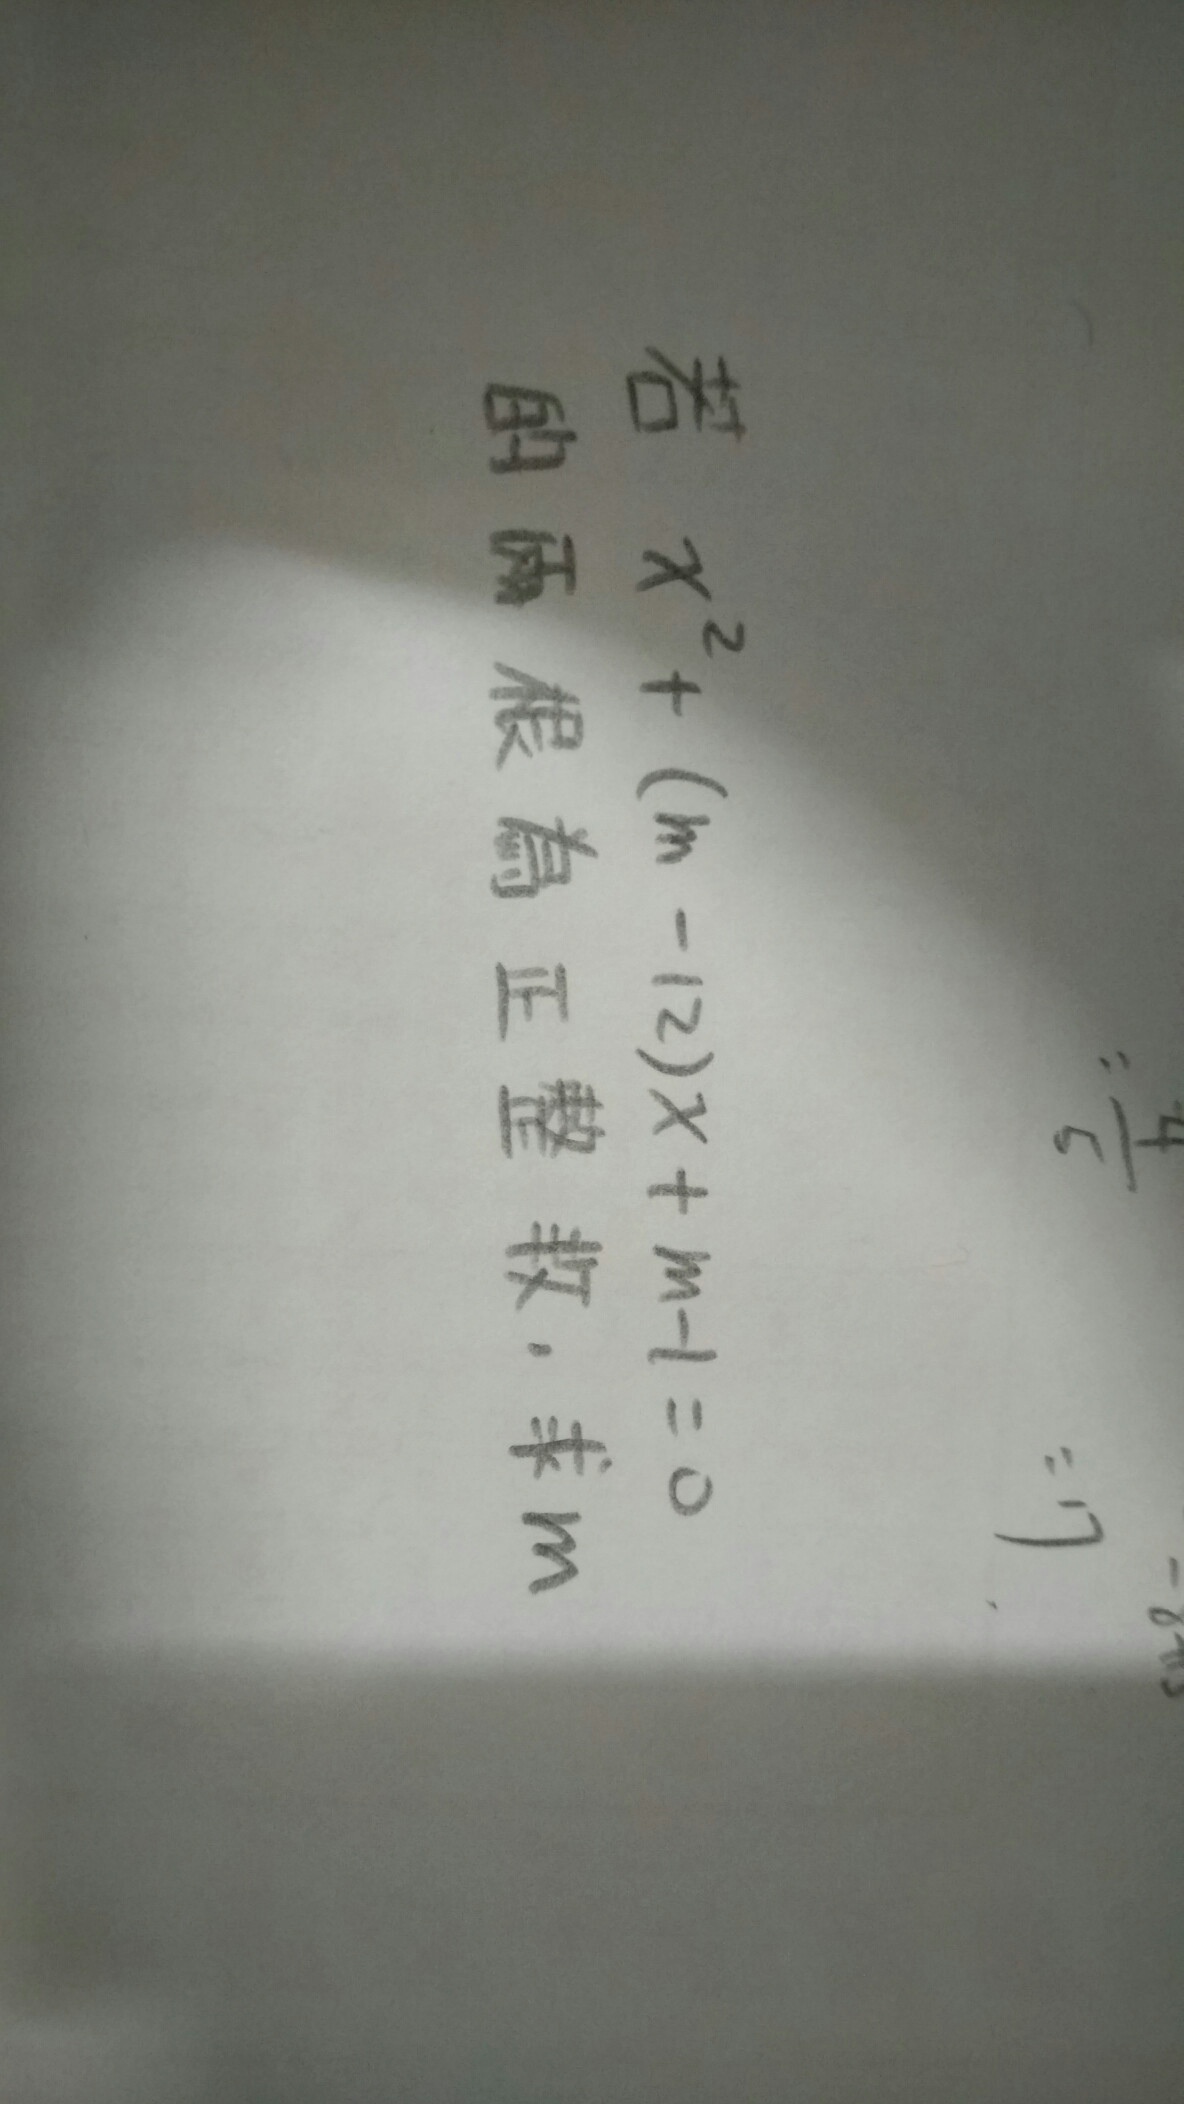 若 x²+(m-12)x+m-1=0
的兩根為正整數.求m